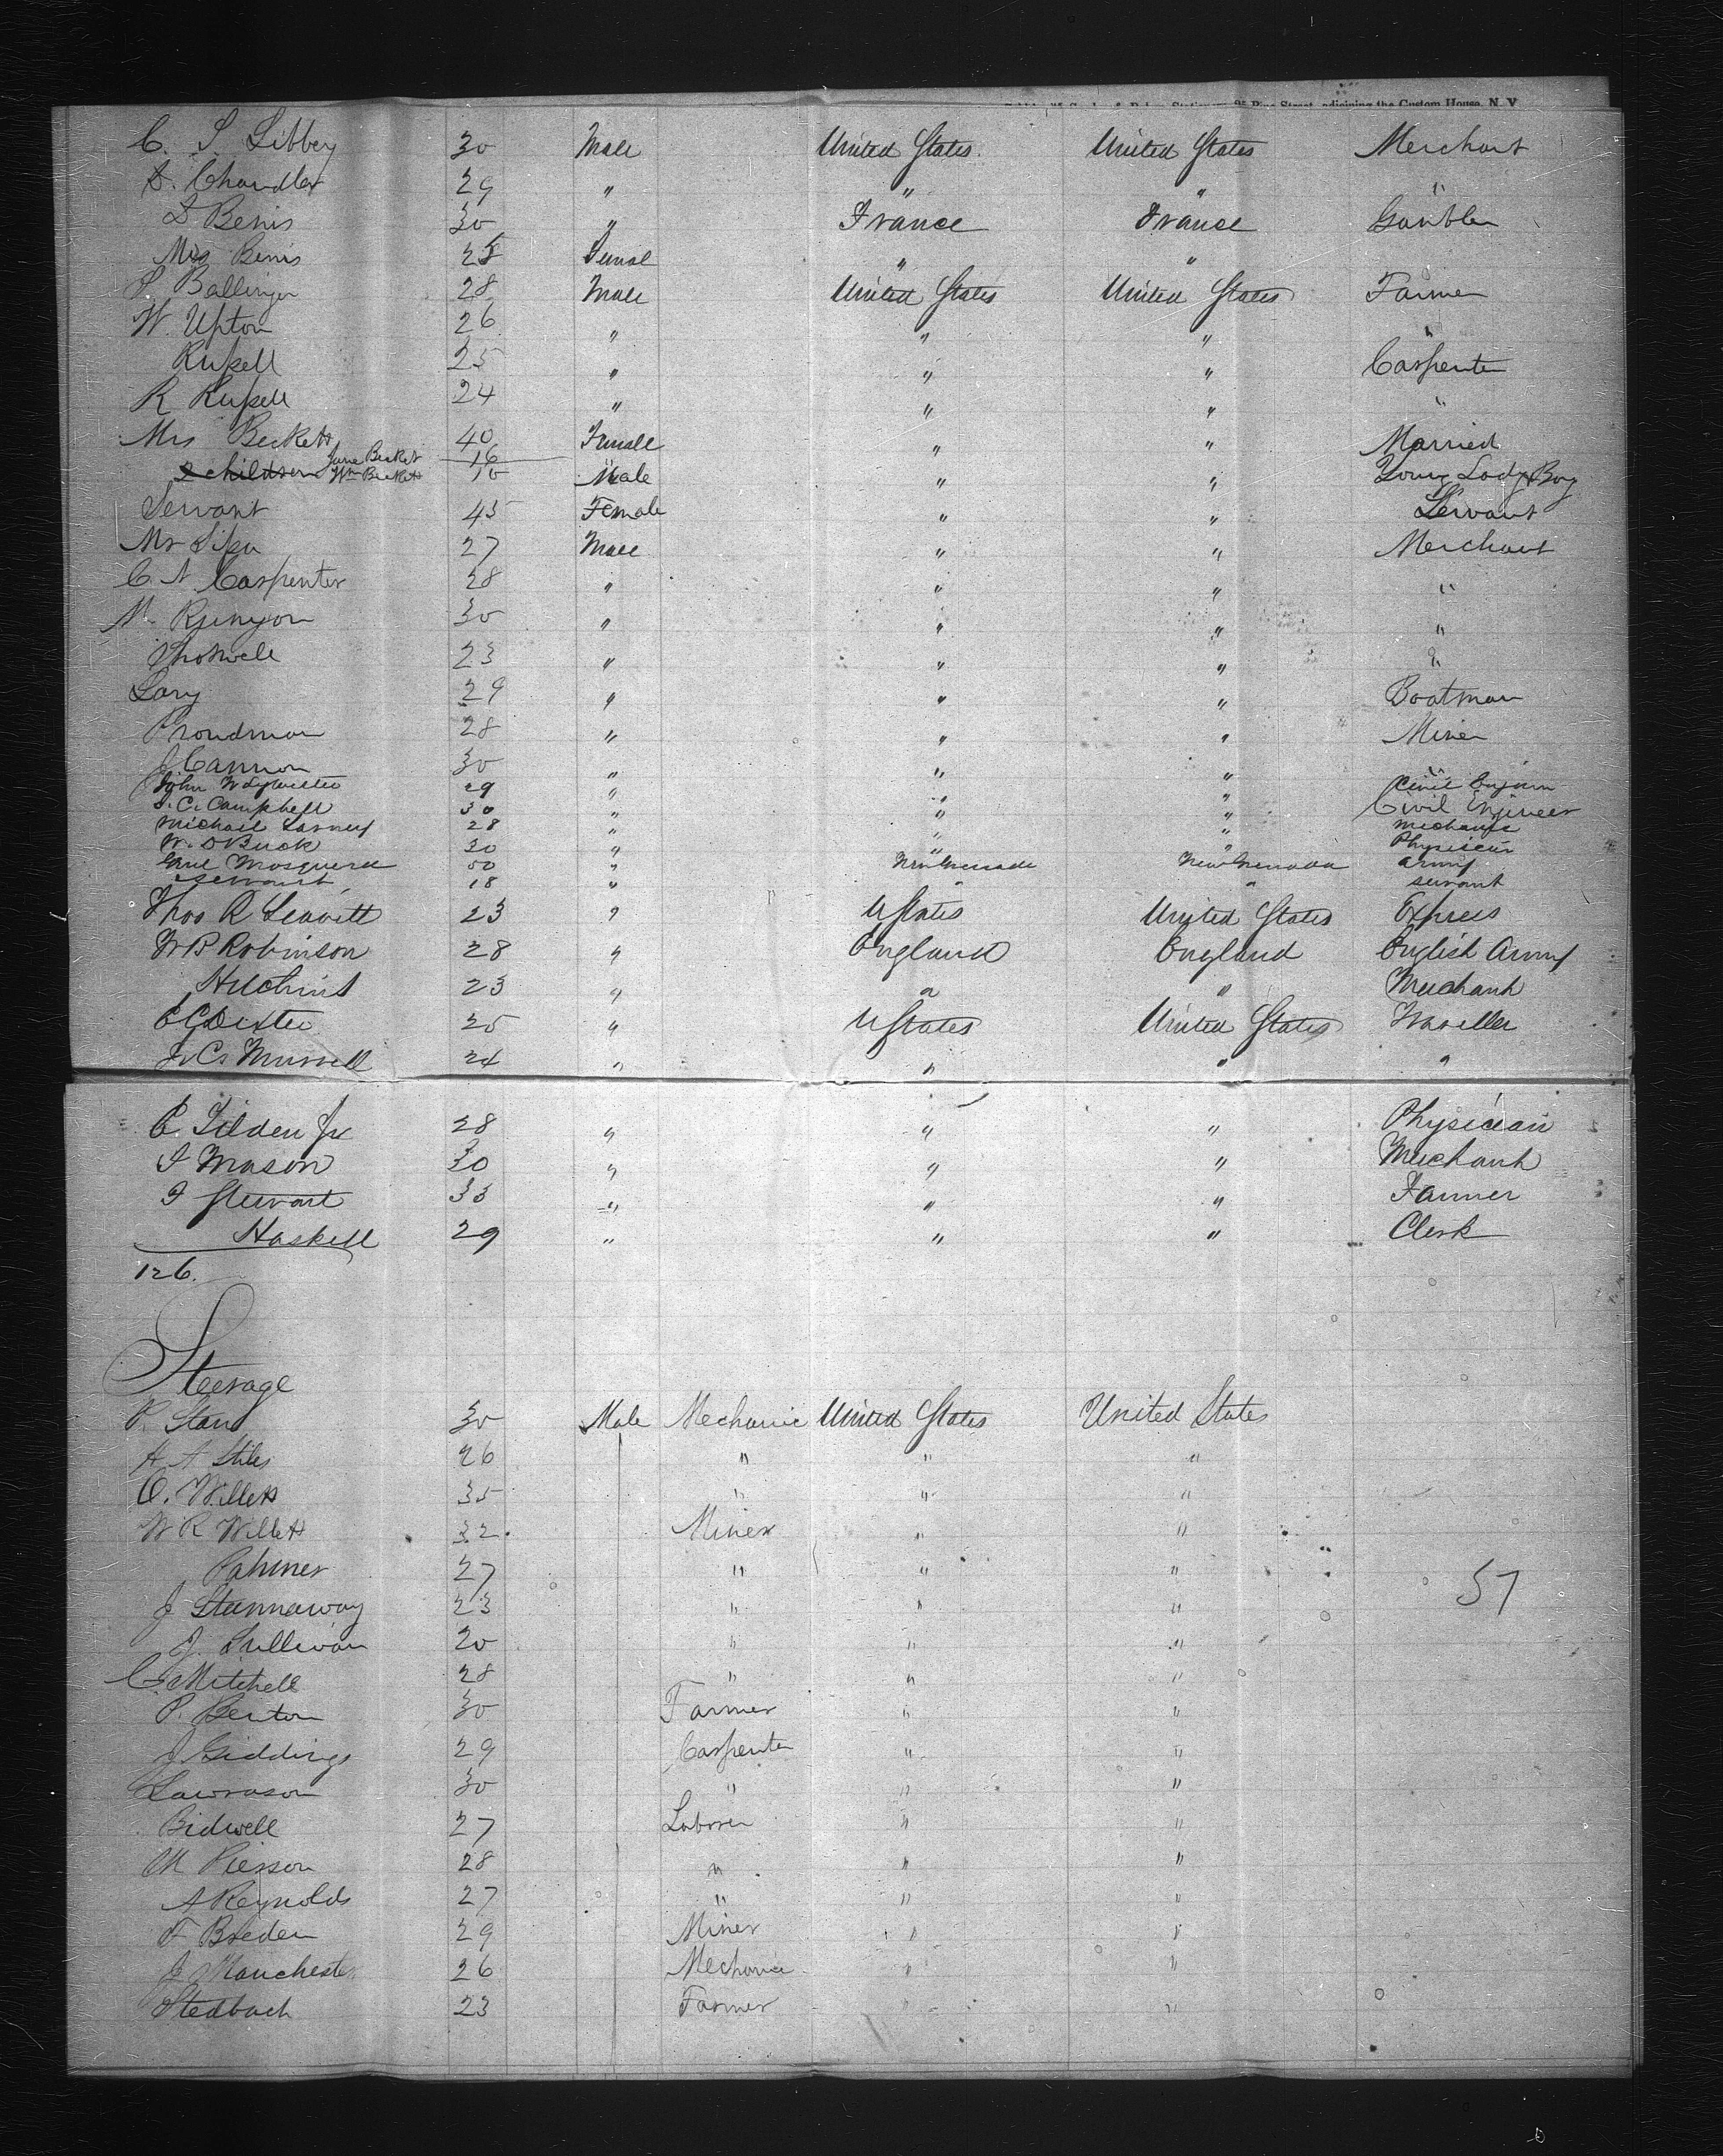 adjoining the Custom House, N. Y.
C. S. Libbey 30 Male United States United States Merchant
S. Chandler 29 " " " "
Benis 30 " France France Gambler
Mrs Benis 25 Femal " "
Ballinger 28 Male United States United States Farmer
W. Upton 26 " " " "
Russell 25 " " " Carpenter
R Russell 24 " " " "
Mrs Beckett 40 Female " " Married
2 children Jane Becket 16 " Young Lady & Boy
Wm Beckett 10 Male " "
Servant 45 Female " " Servant
Mr 27 Male " " Merchant
C. A Carpenter 28 " " " "
M. Runyon 30 " " " "
Shotwell 23 " " " "
Lary 29 " " " Boatman
Proudman 28 " " " Miner
J Cannon 30 " " " "
John W 29 " " " Civil
S. C. Campbell 30 " " " Civil Engineer
Michael 28 " " " Mechanic
W. D Buck 30 " " " Physician
Mosquera 50 " New Grenada New Grenada Army
servant 18 " " " servant
Thos R Leavitt 23 " U States United States Express
W B Robinson 28 " England England English Army
Hutchins 23 " " " Merchant
E G Dexter 25 " U States United States Traveller
J. C. Murrell 24 " " " "
C. Tilden Jr 28 " " " Physician
I Mason 30 " " " Merchant
J Stewart 33 " " " Farmer
Haskell 29 " " " Clerk
126.
Steerage
P. Starr 30 Male Mechanic United States United States
H A Stiles 26 " " "
O. Willett 35 " " "
W R Willett 32. Miner " "
Palmer 27 " " "
J Stannaway 23 " " "
57
J. Sullivan 20 " " "
C. Mitchell 28 " " "
P. Benton 30 Farmer " "
J Giddings 29 Carpenter " "
Lawrason 30 " " "
Bidwell 27 Laborer " "
M Pierson 28 " " "
A Reynolds 27 " " "
F Breden 29 Miner " "
J Manchester 26 Mechanic " "
Stedbach 23 Farmer " "